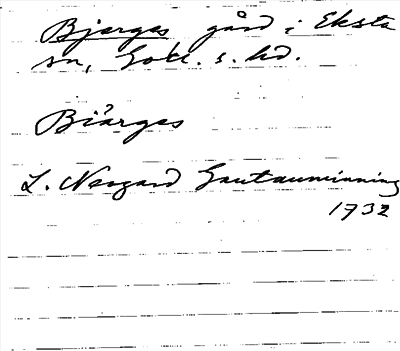 Bjärges gård i Eksta
sn, Gotl. s. hd.
Biärges
L. Nergard Gautauminning
1732